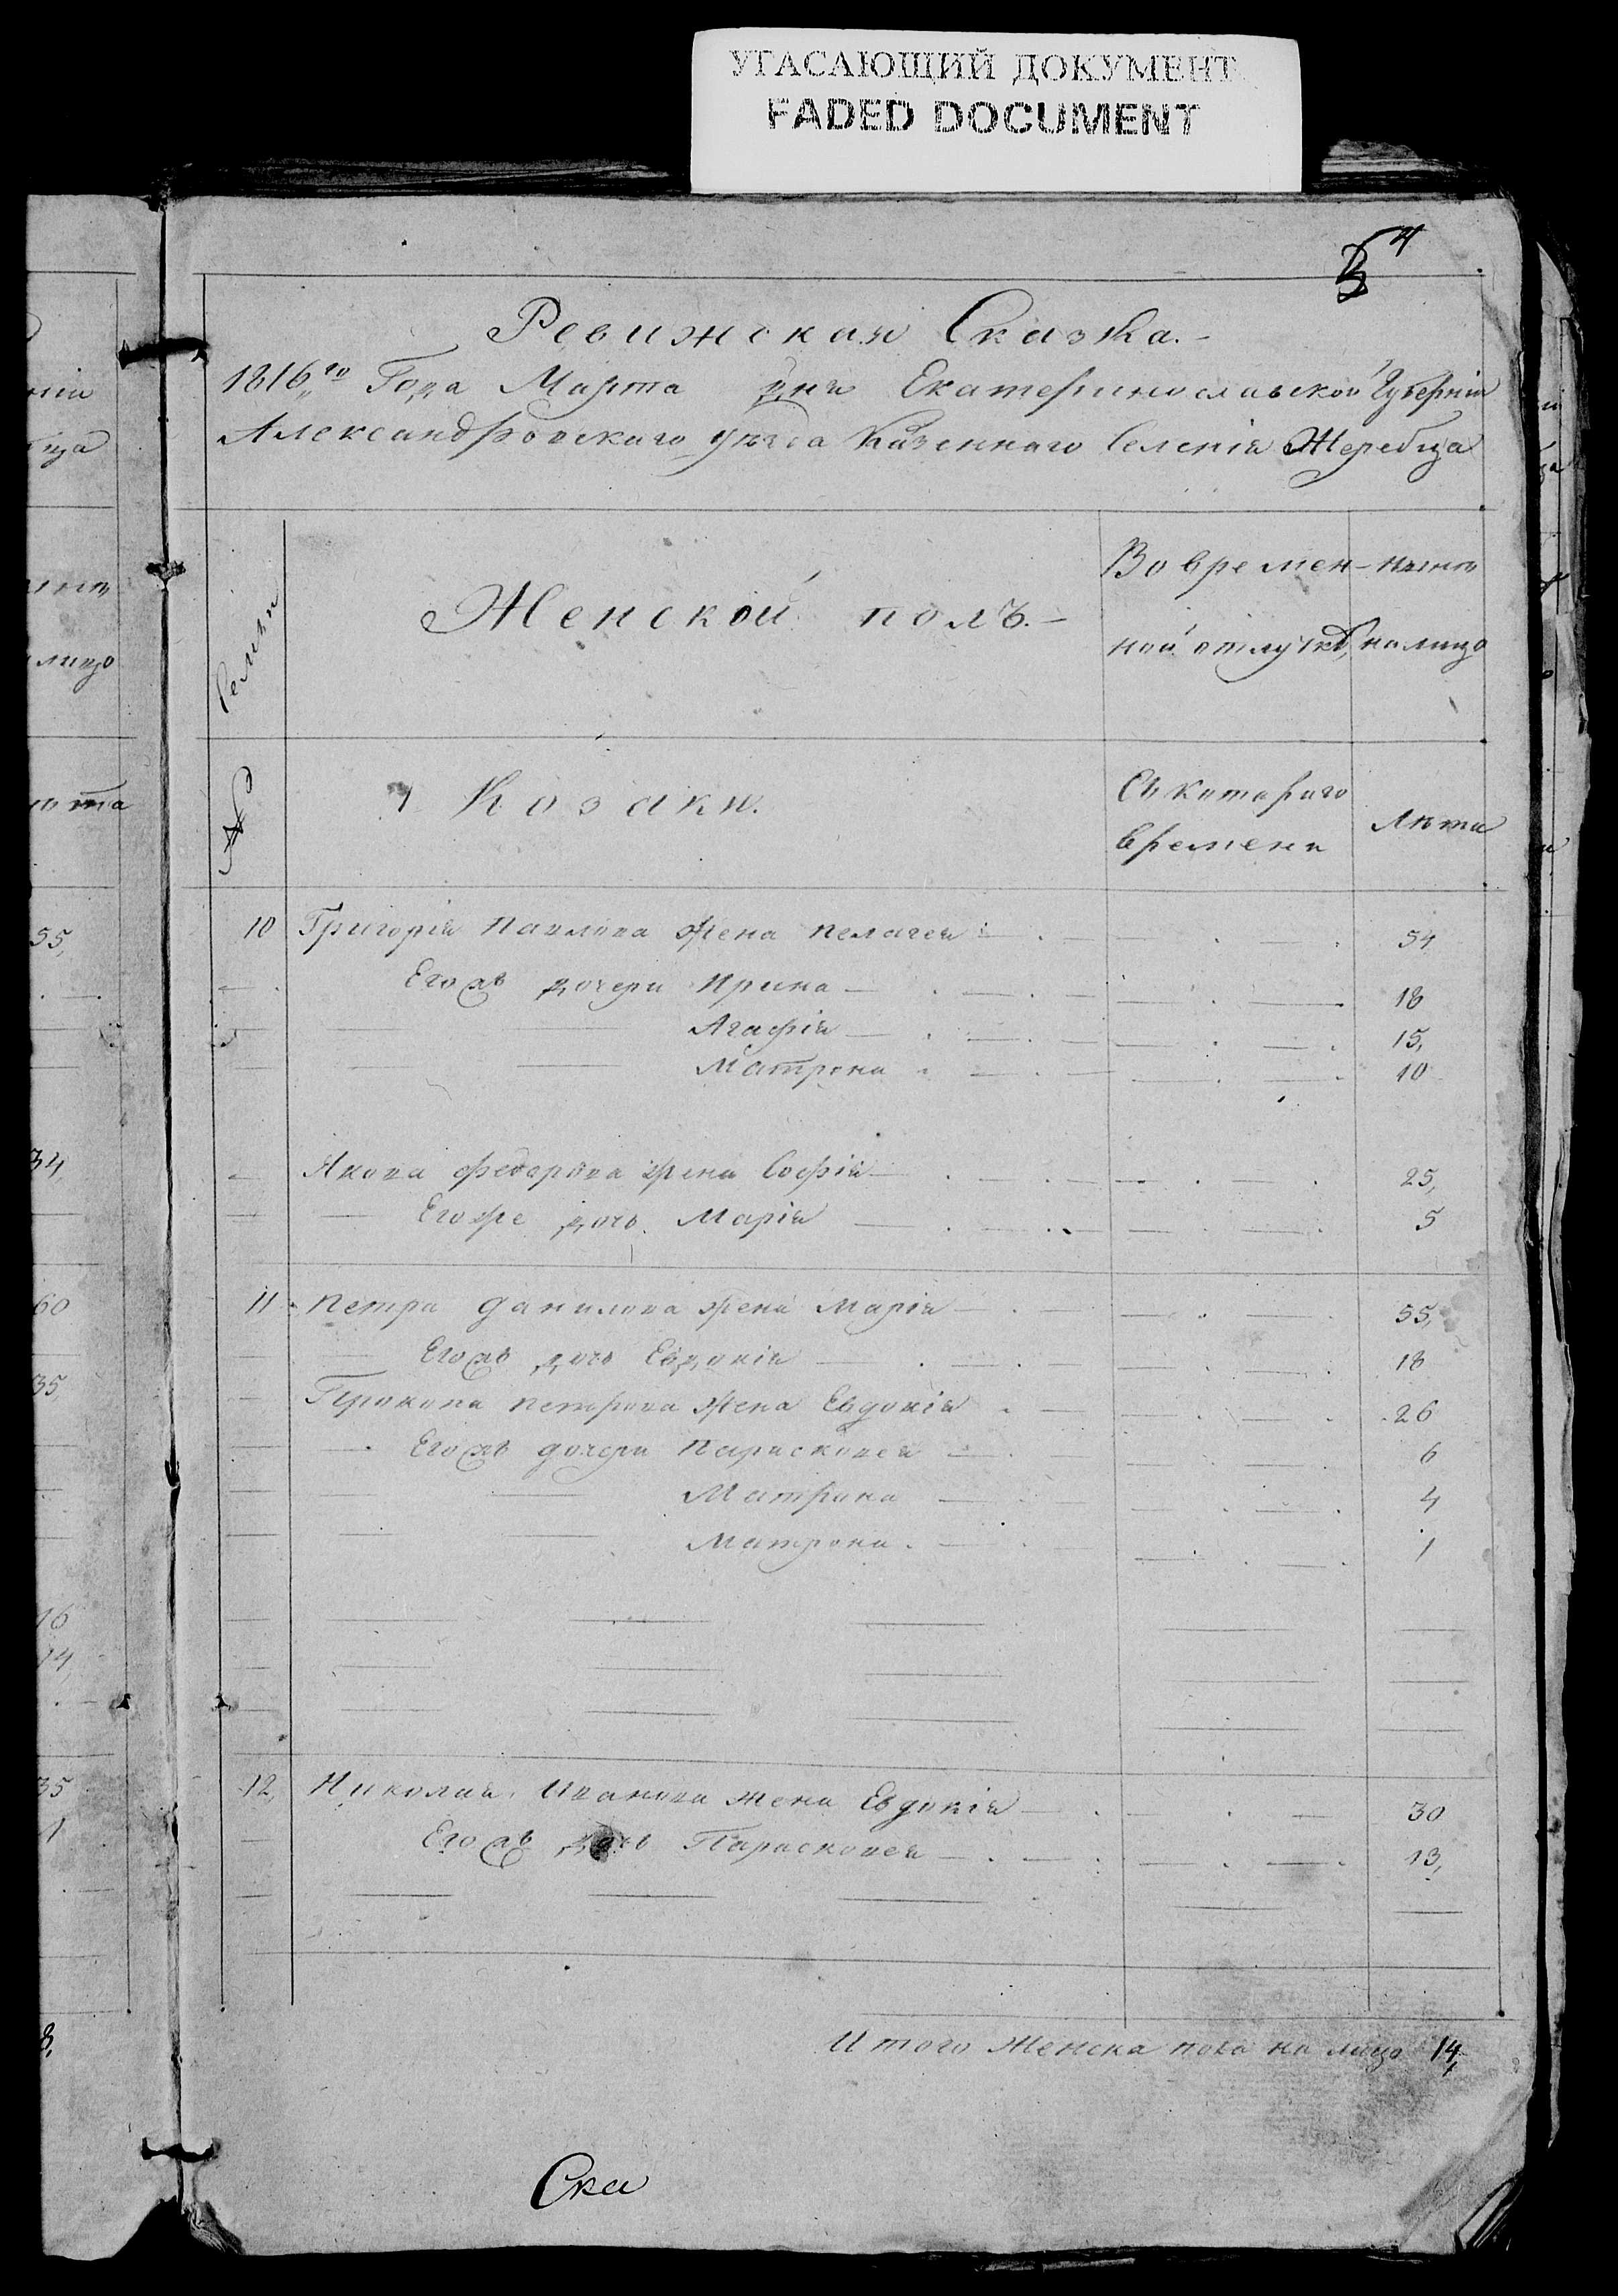 УГАСАЮЩИЙ ДОКУМЕНТ
FADED DOCUMENT
4
Ревижская Сказка.
1816го Года Марта дня Екатеринославской Губернии
Александровского уезда Казенного Селения Жеребца
Женской полъ.
Во времен- ныне
ной отлучкѣ, налицо
№ Козаки. Съ котораго
времени Лѣта
10 Григорія Павлова жена Пелагея 54
Егожъ дочери Ирина 18
Агафія 15,
Матрона 10
Якова Федорова жена Софія 25,
Егоже дочь Марія 5
11 Петра Данилова жена Марія 55,
Егожъ дочь Евдокія 18
Прокопа Петрова жена Евдокія 26
Егожъ дочери Парасковея 6
Матрона 4
Матрона. 1
12, Николая Иванова жена Евдокія 30
Егожъ дочь Парасковея 13,
Итого женска пола на лицо 14,
Ска
55,
34,
60
35,
16
14,
35
1
8,
лицо